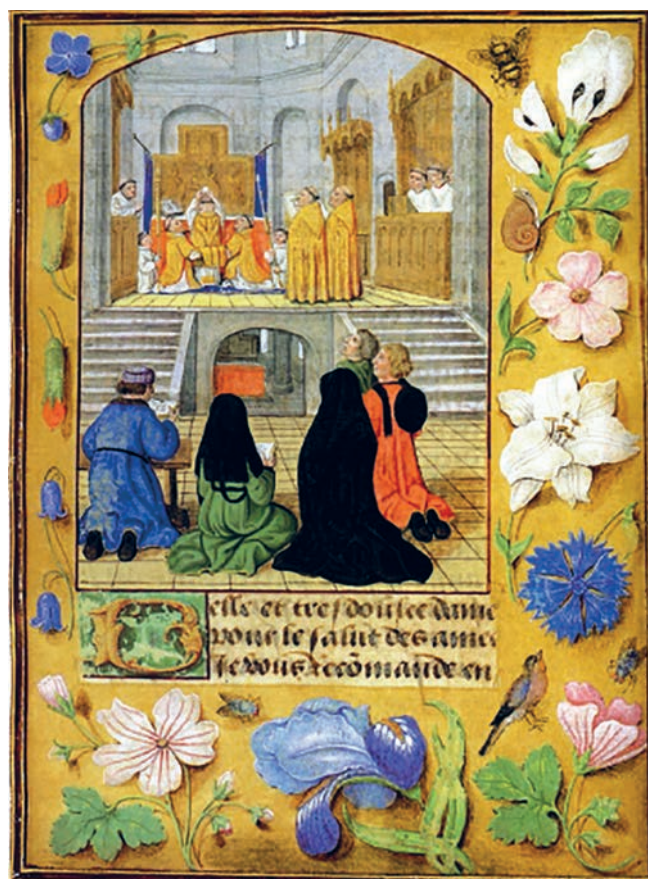 Belle et tres doulce dame
pour le salut des ames
Je vous recõmande en